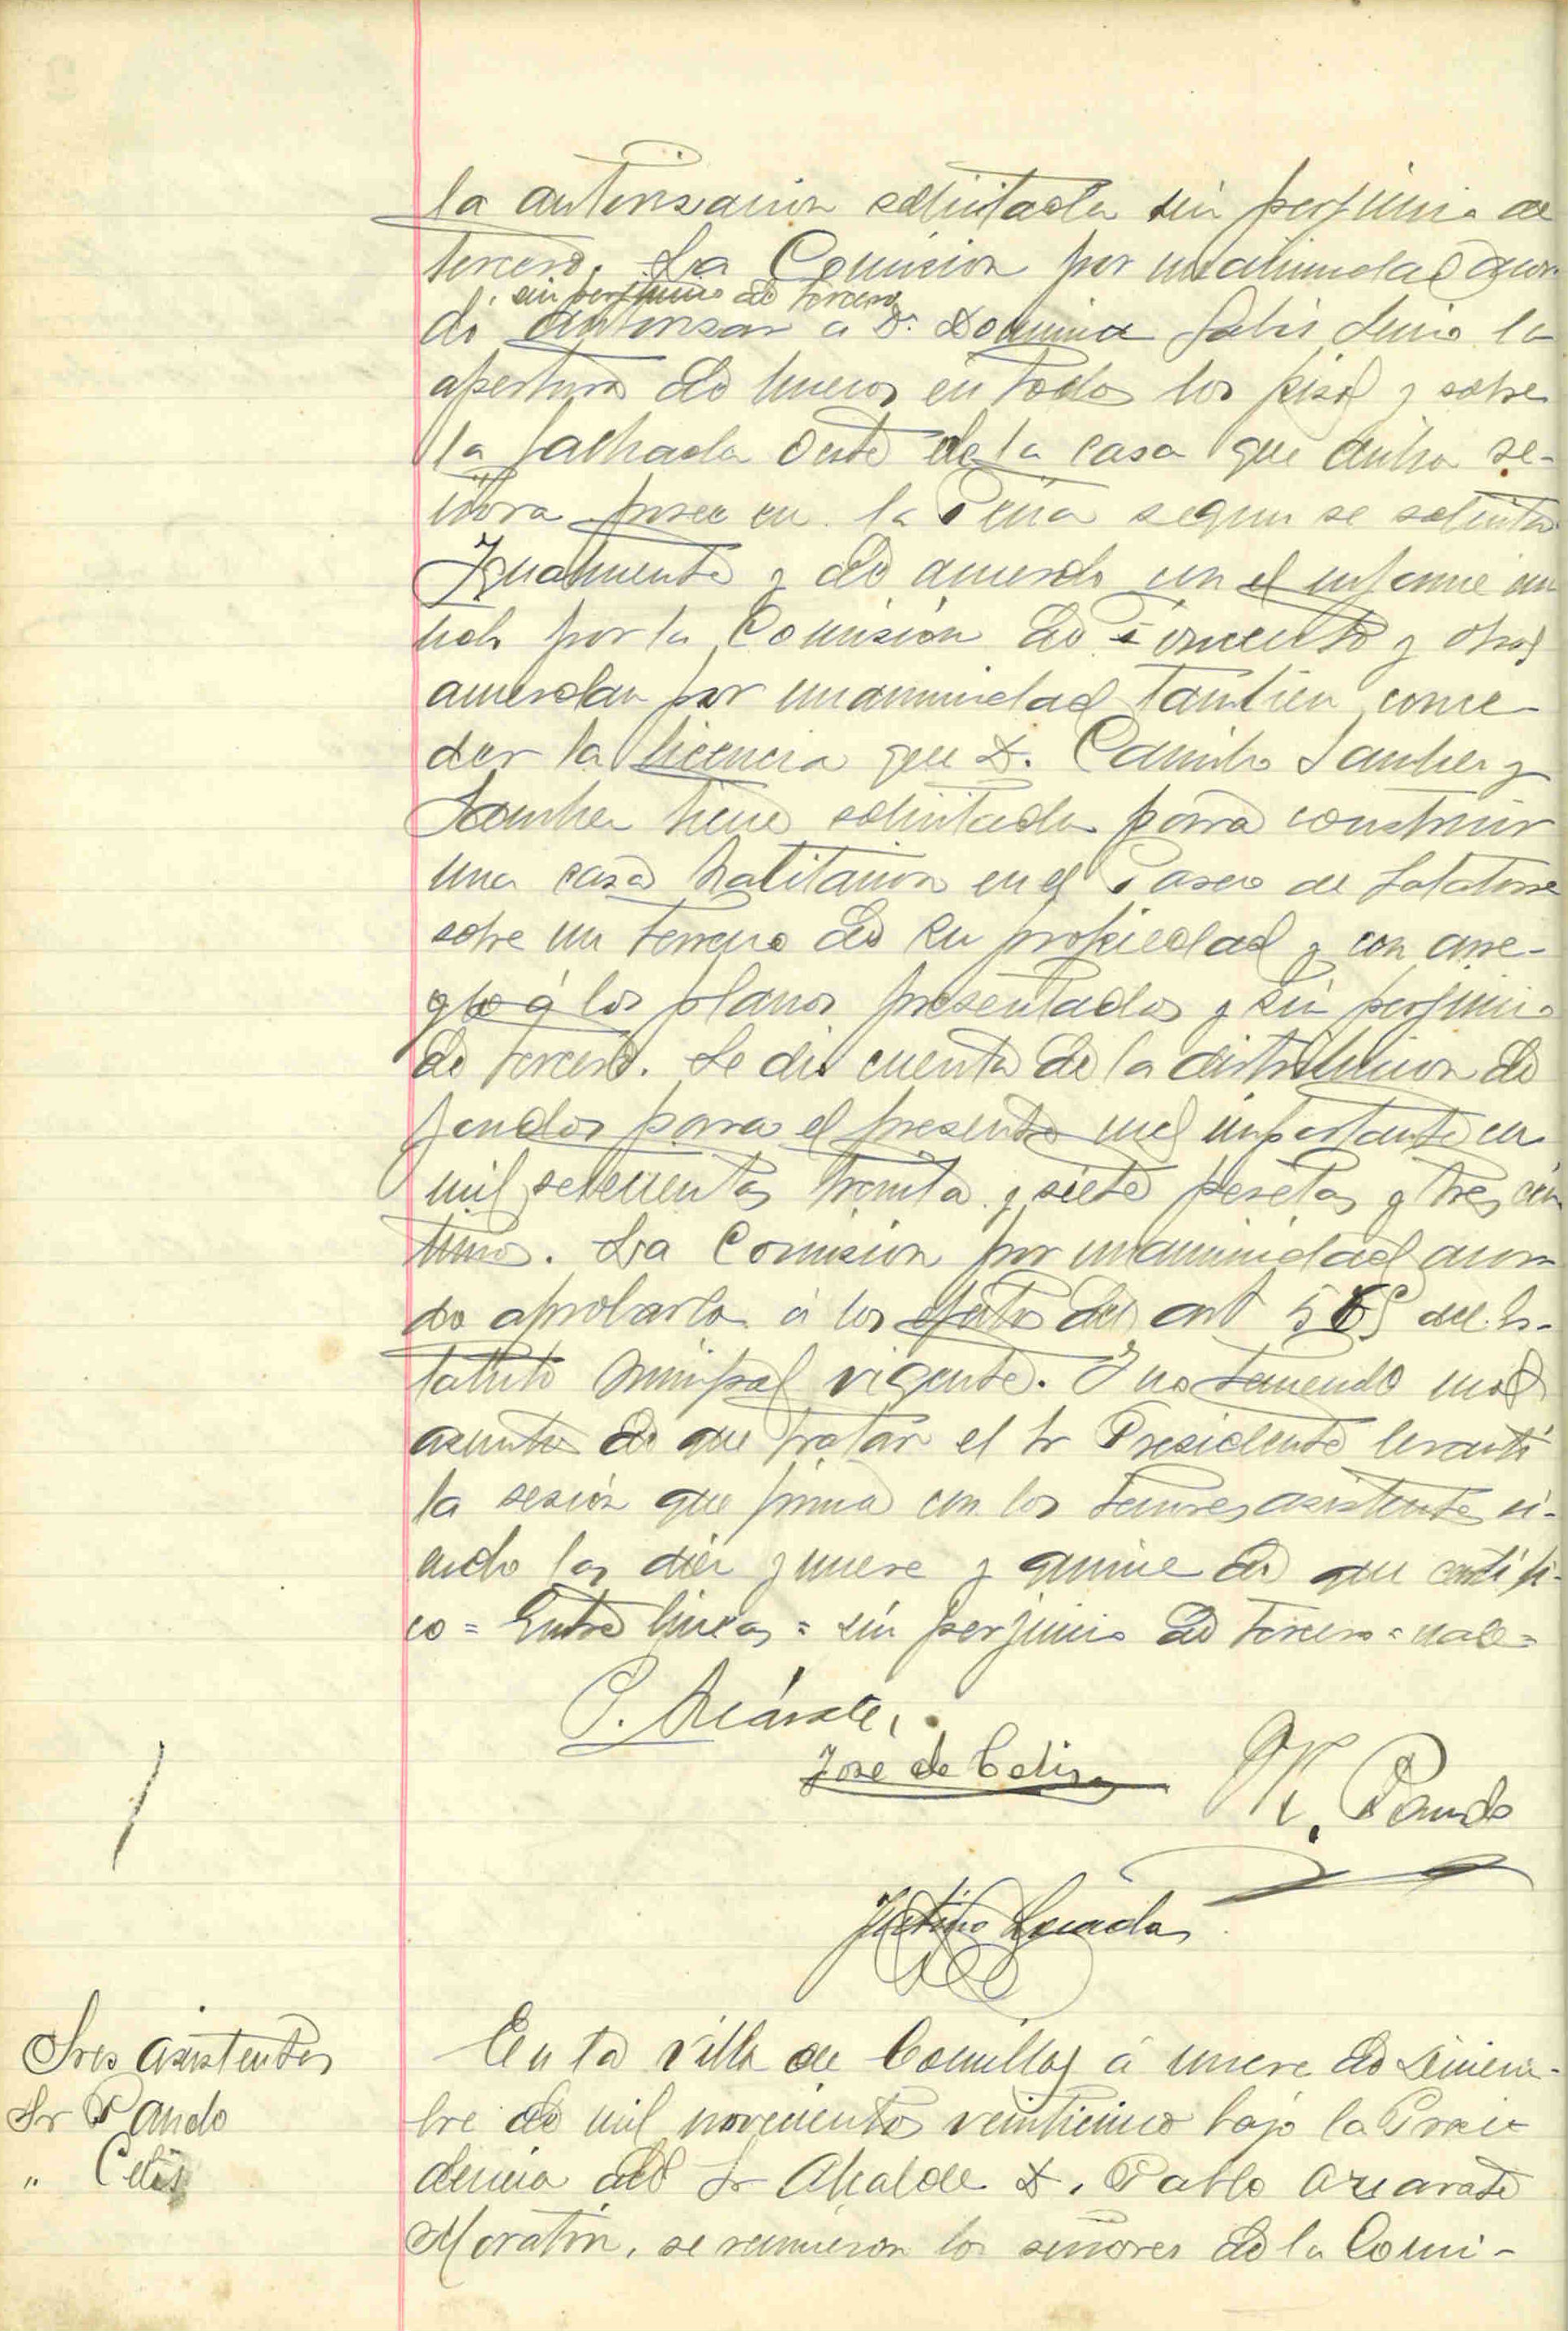 la autorización solicitada sin perjuicio de
tercero. La Comision por unanimidad acor-
sin perjuicio de tercero
dó autorizar a Dª Domina la
apertura de huecos en todos los pisos y sobre
la fachada Oeste de la casa que dicha se-
ñora posee en la Peña segun se solicita
Igualmente y de acuerdo con el informe emi
tido por la Comisión de Fomento y obras
acuerdan por unanimidad tambien conce-
der la licencia que D. Camilo Sanchez y
Sanchez tiene solicitada para construir
una casa habitacion en el Paseo de Solatorre
sobre un terreno de su propiedad y con arre-
glo á los planos presentados y sin perjuicio
de tercero. Se dió cuenta de la distribucion de
fondos para el presente mes importante en
mil setecientas treinta y siete pesetas y tres cén
timos. La Comision por unanimidad acor-
do aprobarla á los efectos del art del Es-
tatuto Municipal vigente. Y no teniendo mas
asuntos de que tratar el Sr Presidente levantó
la sesión que firma con los Señores asistentes si-
endo las diez y nueve y quince de que certifi-
co = Entre lineas = sin perjuicio de tercero = vale =
P. Azárate
José de Celis
V. Pando
Sres Asistentes
Sr Pando
" Celis
En la Villa de Comillas á nueve de Diciem-
bre de mil novecientos veinticinco bajo la Presi-
dencia del Sr Alcalde D. Pablo Azarate
Moratin, se reunieron los señores de la Comi-